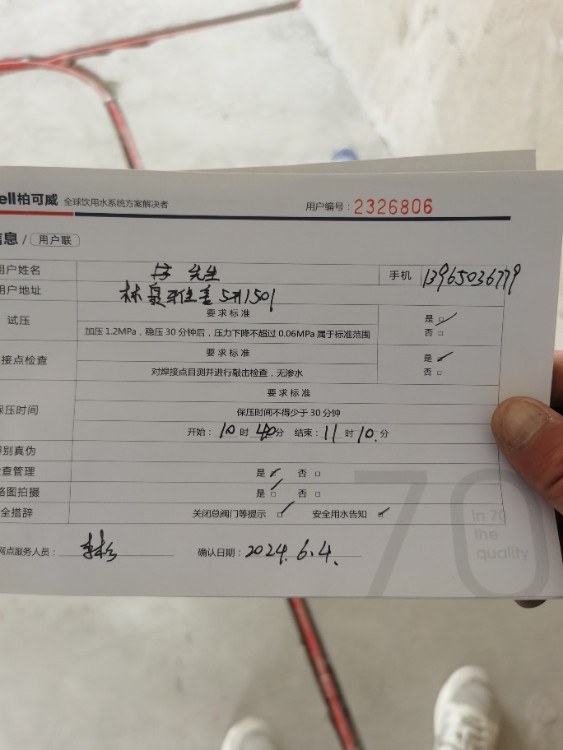 ell柏可威 全球饮用水系统方案解决者 用户编号：2326806
信息 / 用户联
用户姓名 先生 手机 13965036779
用户地址 林泉雅 5#1501
试压 要求标准 是
加压1.2MPa，稳压30分钟后，压力下降不超过0.06MPa属于标准范围 否
接点检查 要求标准 是
对焊接点目测并进行敲击检查，无渗水 否
保压时间 要求标准
保压时间不得少于30分钟
开始：10时40分 结束：11时10分
别真伪
查管理 是 否
路图拍摄 是 否
全措辞 关闭总阀门等提示 安全用水告知
网点服务人员： 确认日期：2024.6.4.
70
In 70
the
quality